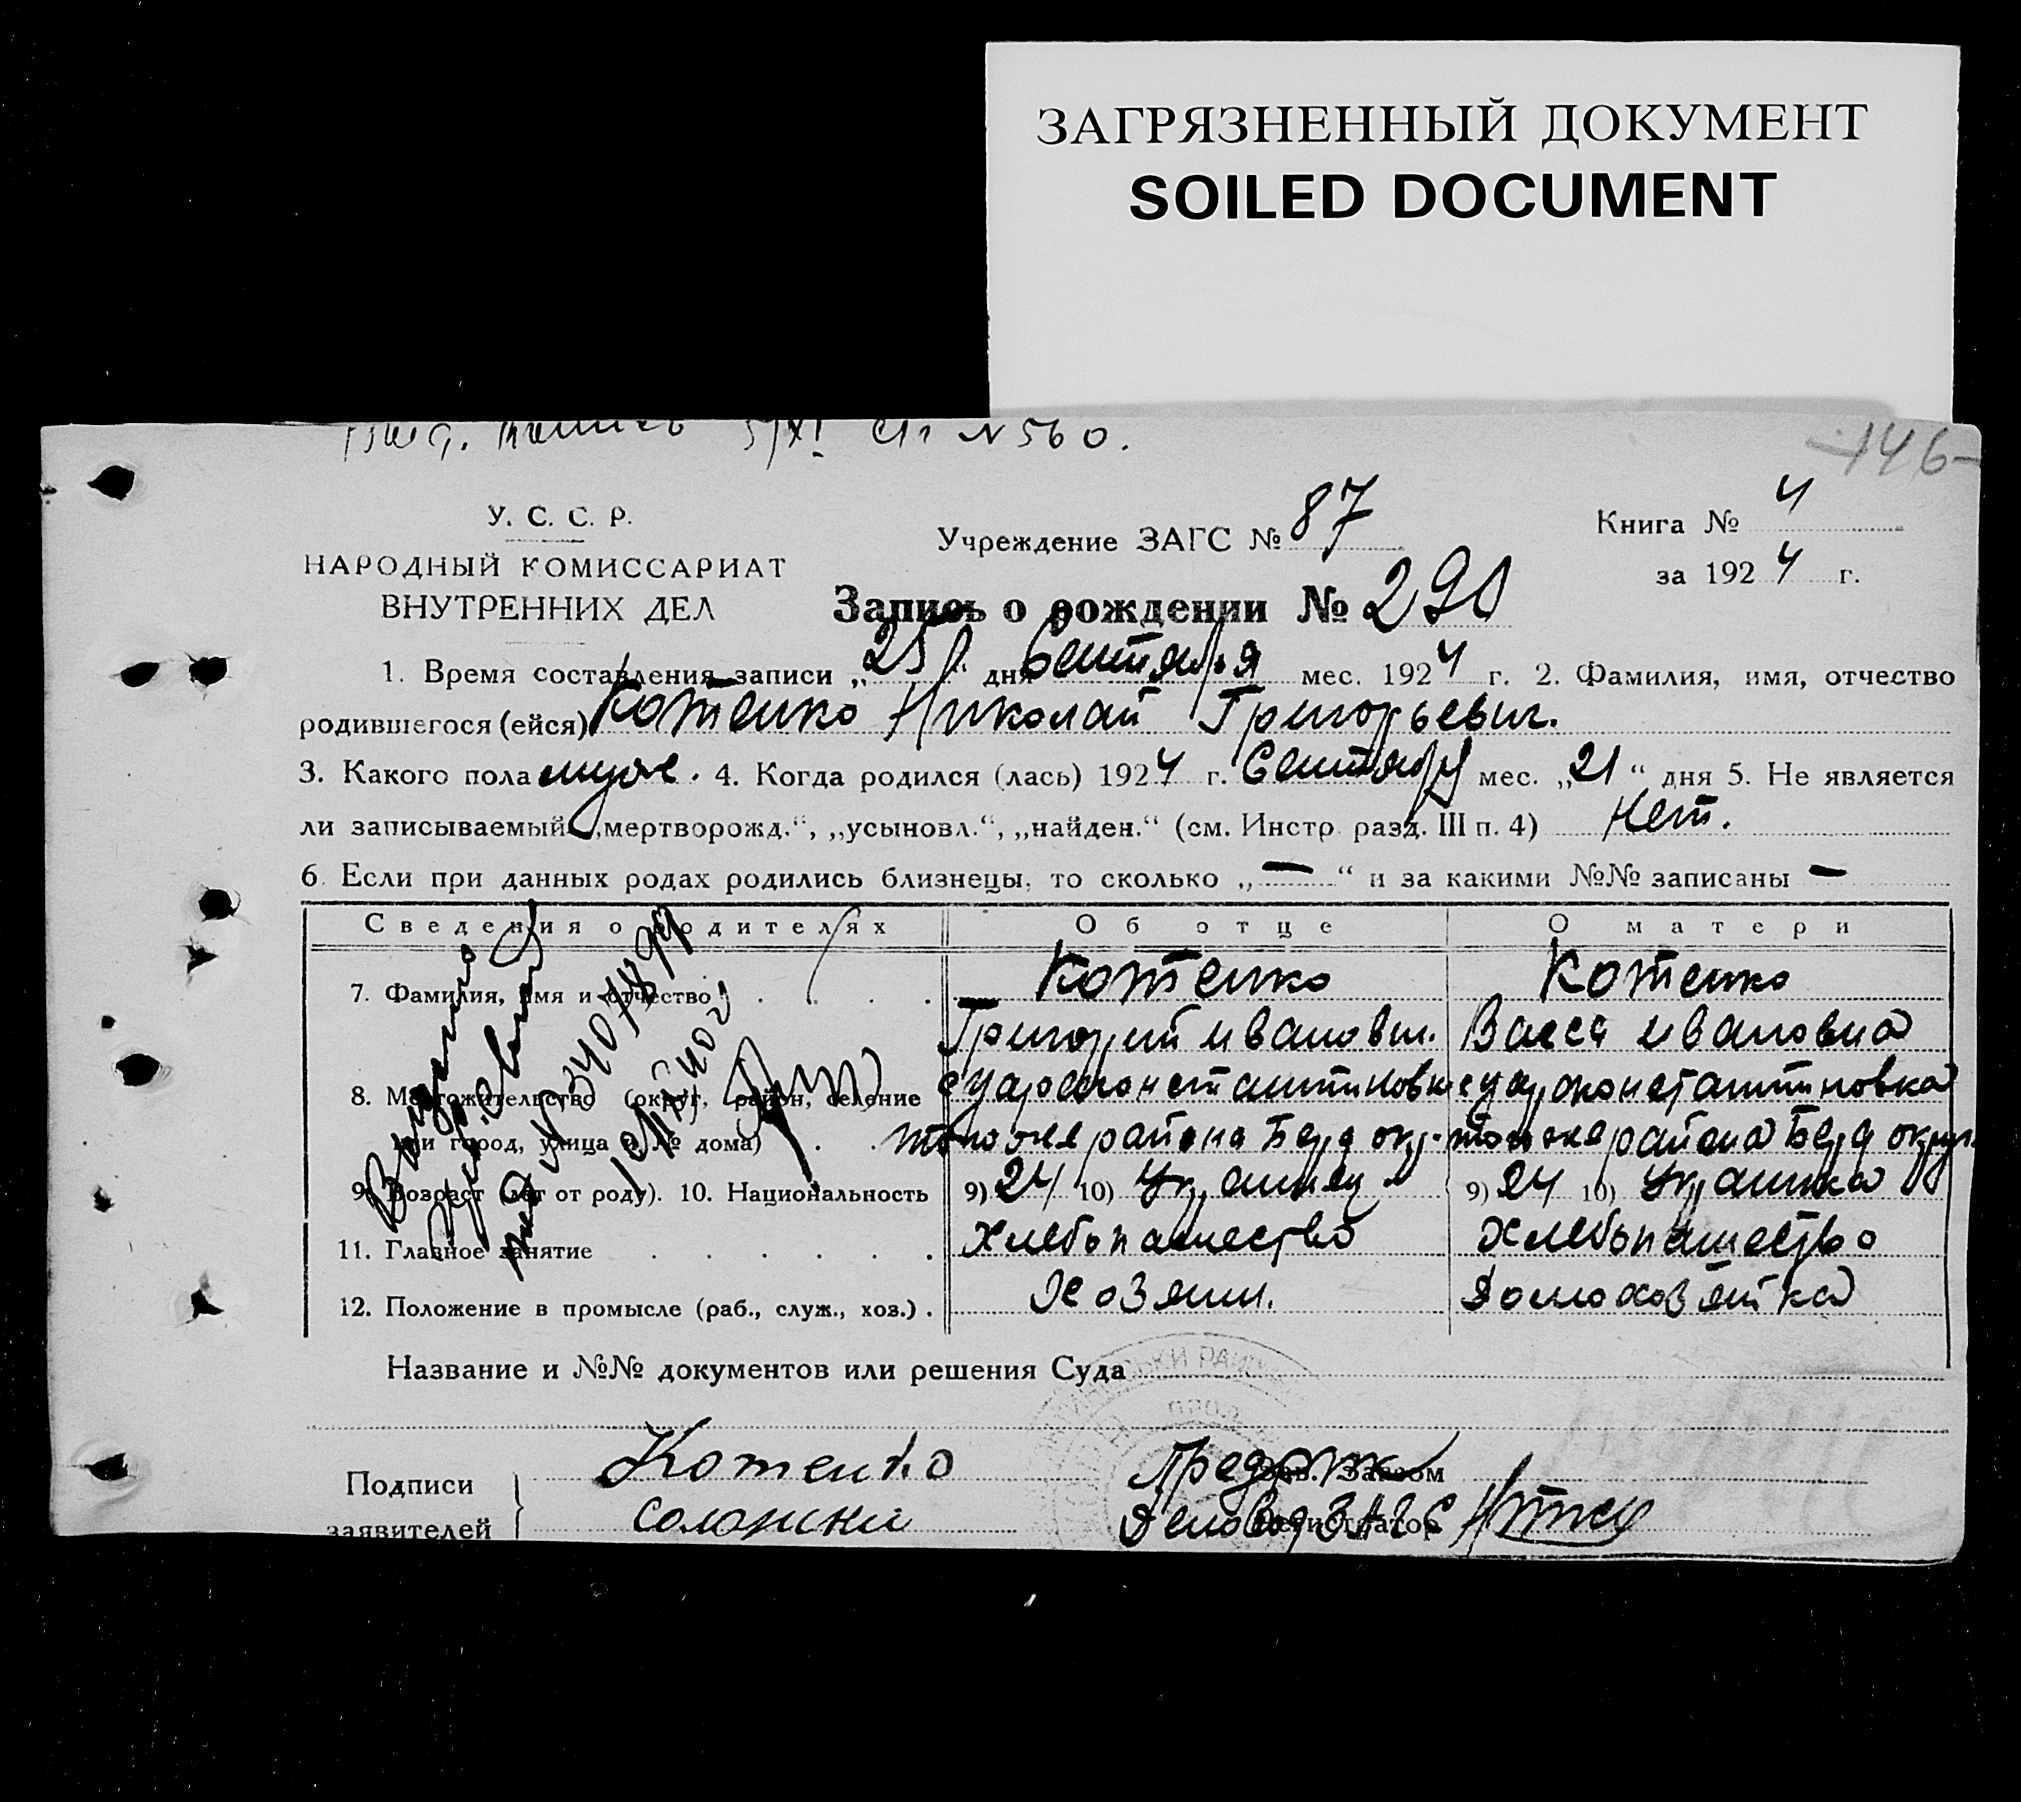 ЗАГРЯЗНЕННЫЙ ДОКУМЕНТ
SOILED DOCUMENT
5/XI № 560.
146
У. С. С. Р.
НАРОДНЫЙ КОМИССАРИАТ
ВНУТРЕННИХ ДЕЛ
Учреждение ЗАГС № 87
Книга № 4
за 1924 г.
Запись о рождении № 290
1. Время составления записи „25“ дня Сентября мес. 1924 г. 2. Фамилия, имя, отчество
родившегося (ейся) Котенко Николай Григорьевич.
3. Какого пола муж. 4. Когда родился (лась) 1924 г. Сентября мес. „21“ дня 5. Не является
ли записываемый „мертворожд.“, „усыновл.“, „найден.“ (см. Инстр. разд. III п. 4) Нет.
6. Если при данных родах родились близнецы, то сколько „—“ и за какими №№ записаны —
Сведения о родителях Об отце О матери
7. Фамилия, имя и отчество Котенко Котенко
Григорий Иванович. Васса Ивановна
8. Местожительство (округ, район, селение
или город, улица и № дома) района Берд окр. района Берд окр.
9. Возраст (лет от роду). 10. Национальность 9) 24 10) Украинец 9) 24 10) Украинка
11. Главное занятие Хлебопашество Хлебопашество
12. Положение в промысле (раб., служ., хоз.) Хозяин. Домохозяйка
Название и №№ документов или решения Суда
Подписи
заявителей
Котенко
Зав. Загсом
Деловод ЗАГС
Регистратор